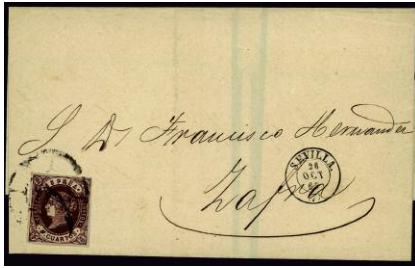 S. Dn Francisco Hernandez
Zafra
SEVILLA.
26
OCT
4 CUARTOS